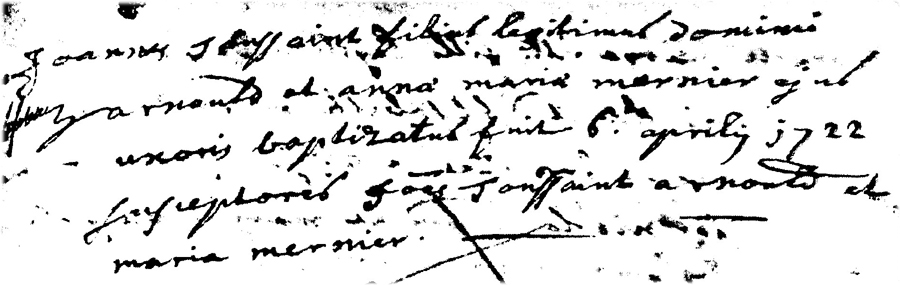 Joannes Toussaint filius legitimus domini
arnould et anna maria mernier ejus
uxoris baptizatus fuit 6. aprilis 1722
susceptores Joes Toussaint arnould et
maria mernier.